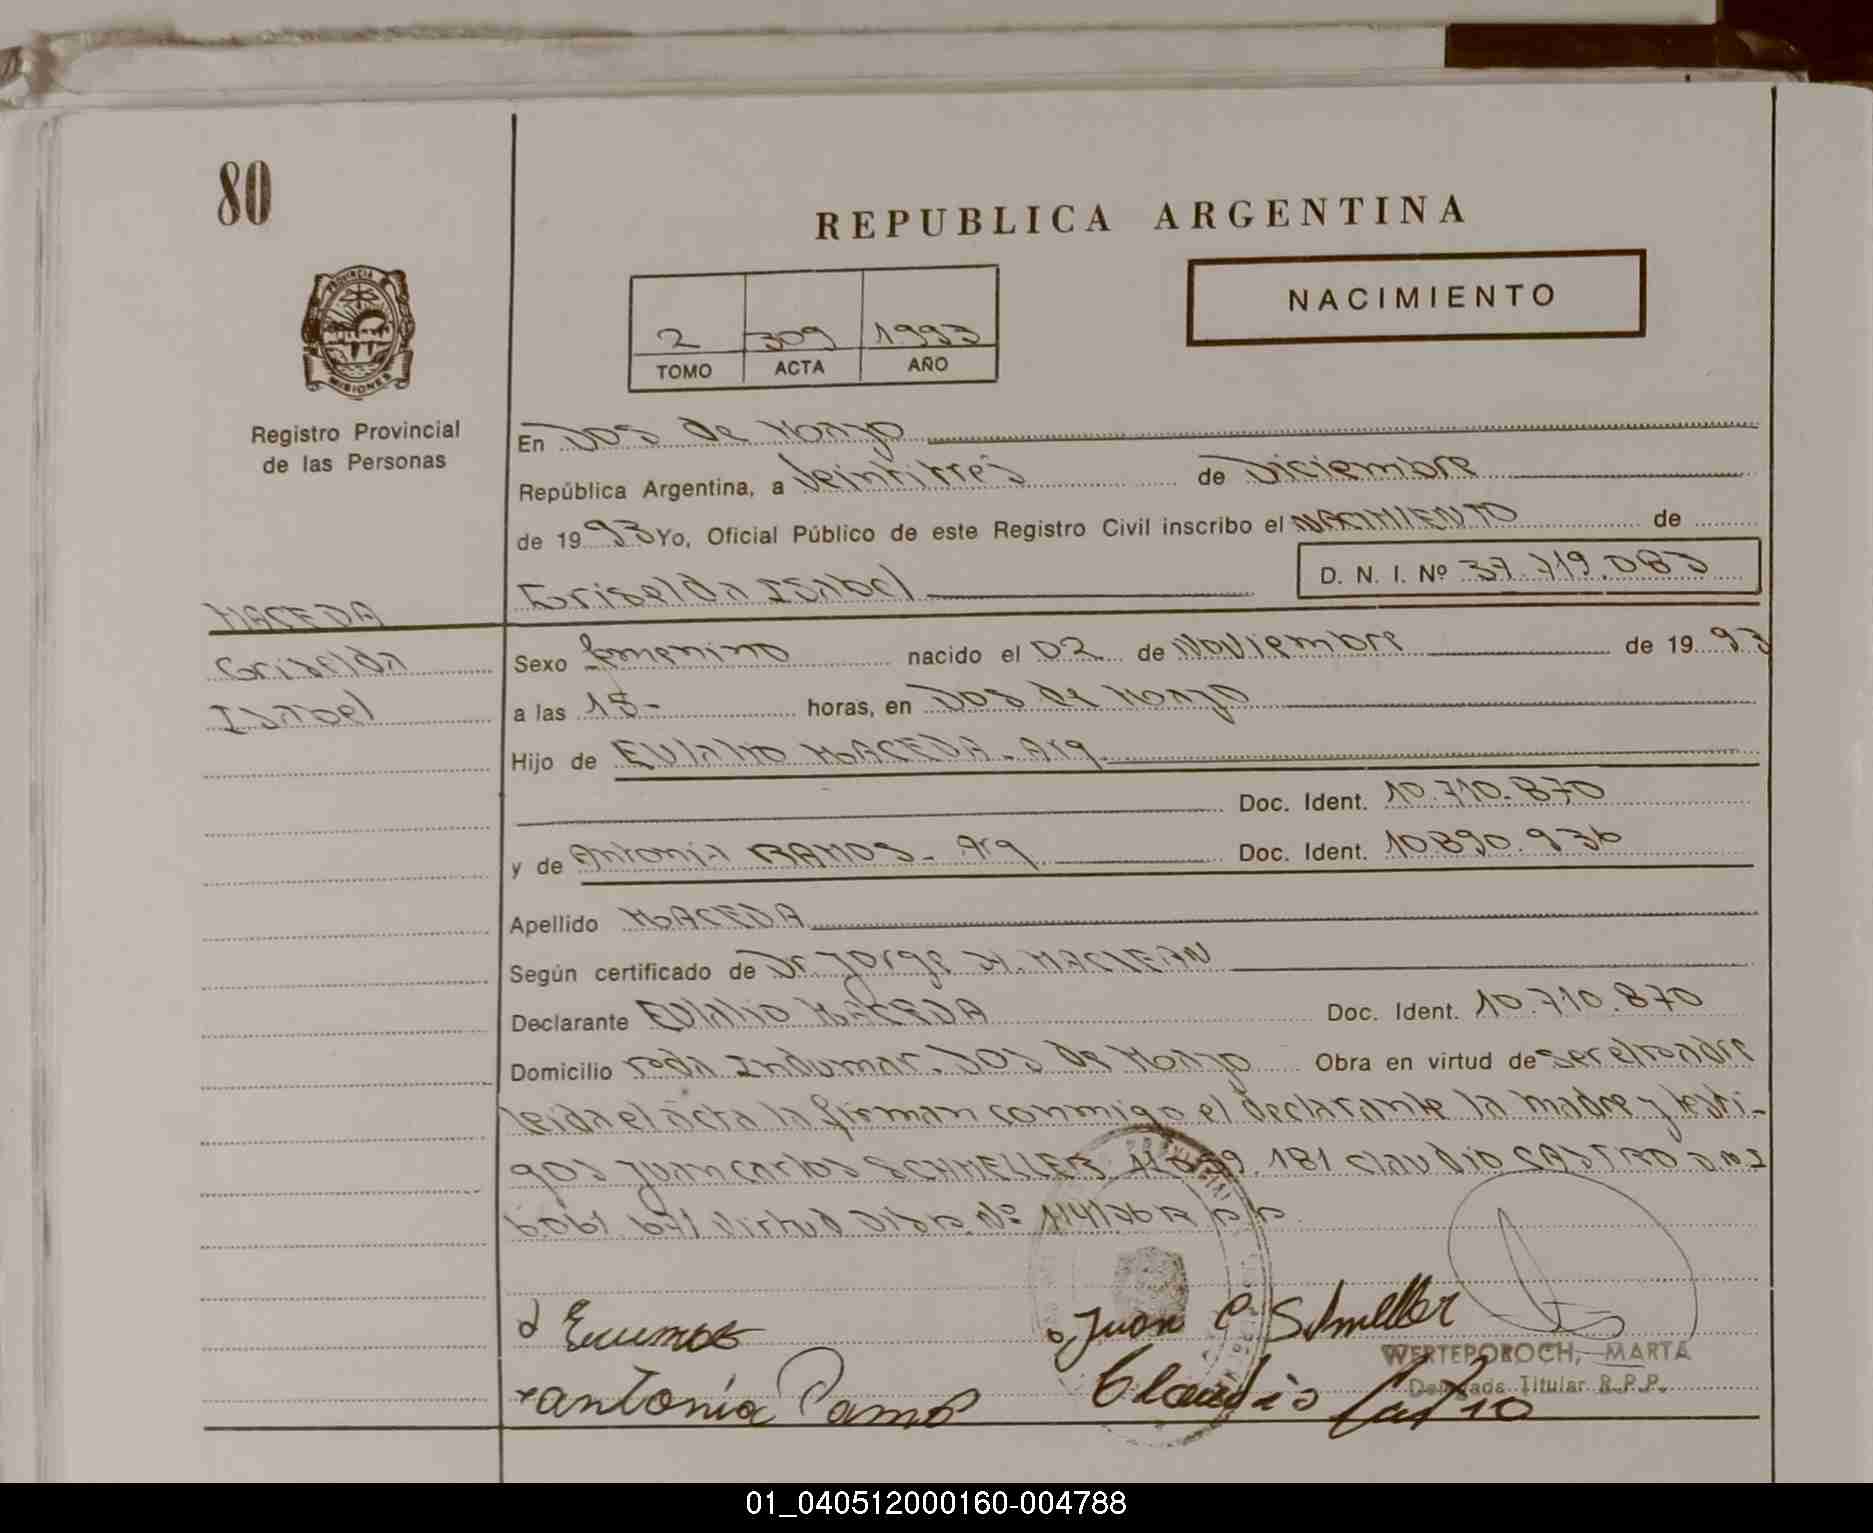 80
REPUBLICA ARGENTINA
PROVINCIA
MISIONES
NACIMIENTO
2 309 1993
TOMO ACTA AÑO
Registro Provincial
de las Personas
En Dos de Mayo
República Argentina, a Veintitres de Diciembre
de 1993 Yo, Oficial Público de este Registro Civil inscribo el NACIMIENTO de
Griselda Isabel
D. N. I. Nº 37.719.083
MACEDA
Griselda
Isabel
Sexo femenino nacido el 02 de Noviembre de 1993
a las 15- horas, en Dos de Mayo
Hijo de Eulalio MACEDA - Arg
Doc. Ident. 10.710.870
y de Antonia RAMOS - Arg Doc. Ident. 10.890.936
Apellido MACEDA
Según certificado de Dr Jorge H. MACLEAN
Declarante Eulalio MACEDA Doc. Ident. 10.710.870
Domicilio Indumar. Dos de Mayo Obra en virtud de ser el
leida el acta la firman conmigo el declarante la madre y testi-
gos Juan Carlos SCHMELLER 181 Claudio CASTRO DNI
virtud Nº
Juan C Schmeller
WERTEPOROCH, MARTA
Delegada Titular R.P.P.
Antonia Ramos
Claudio Castro
01_040512000160-004788